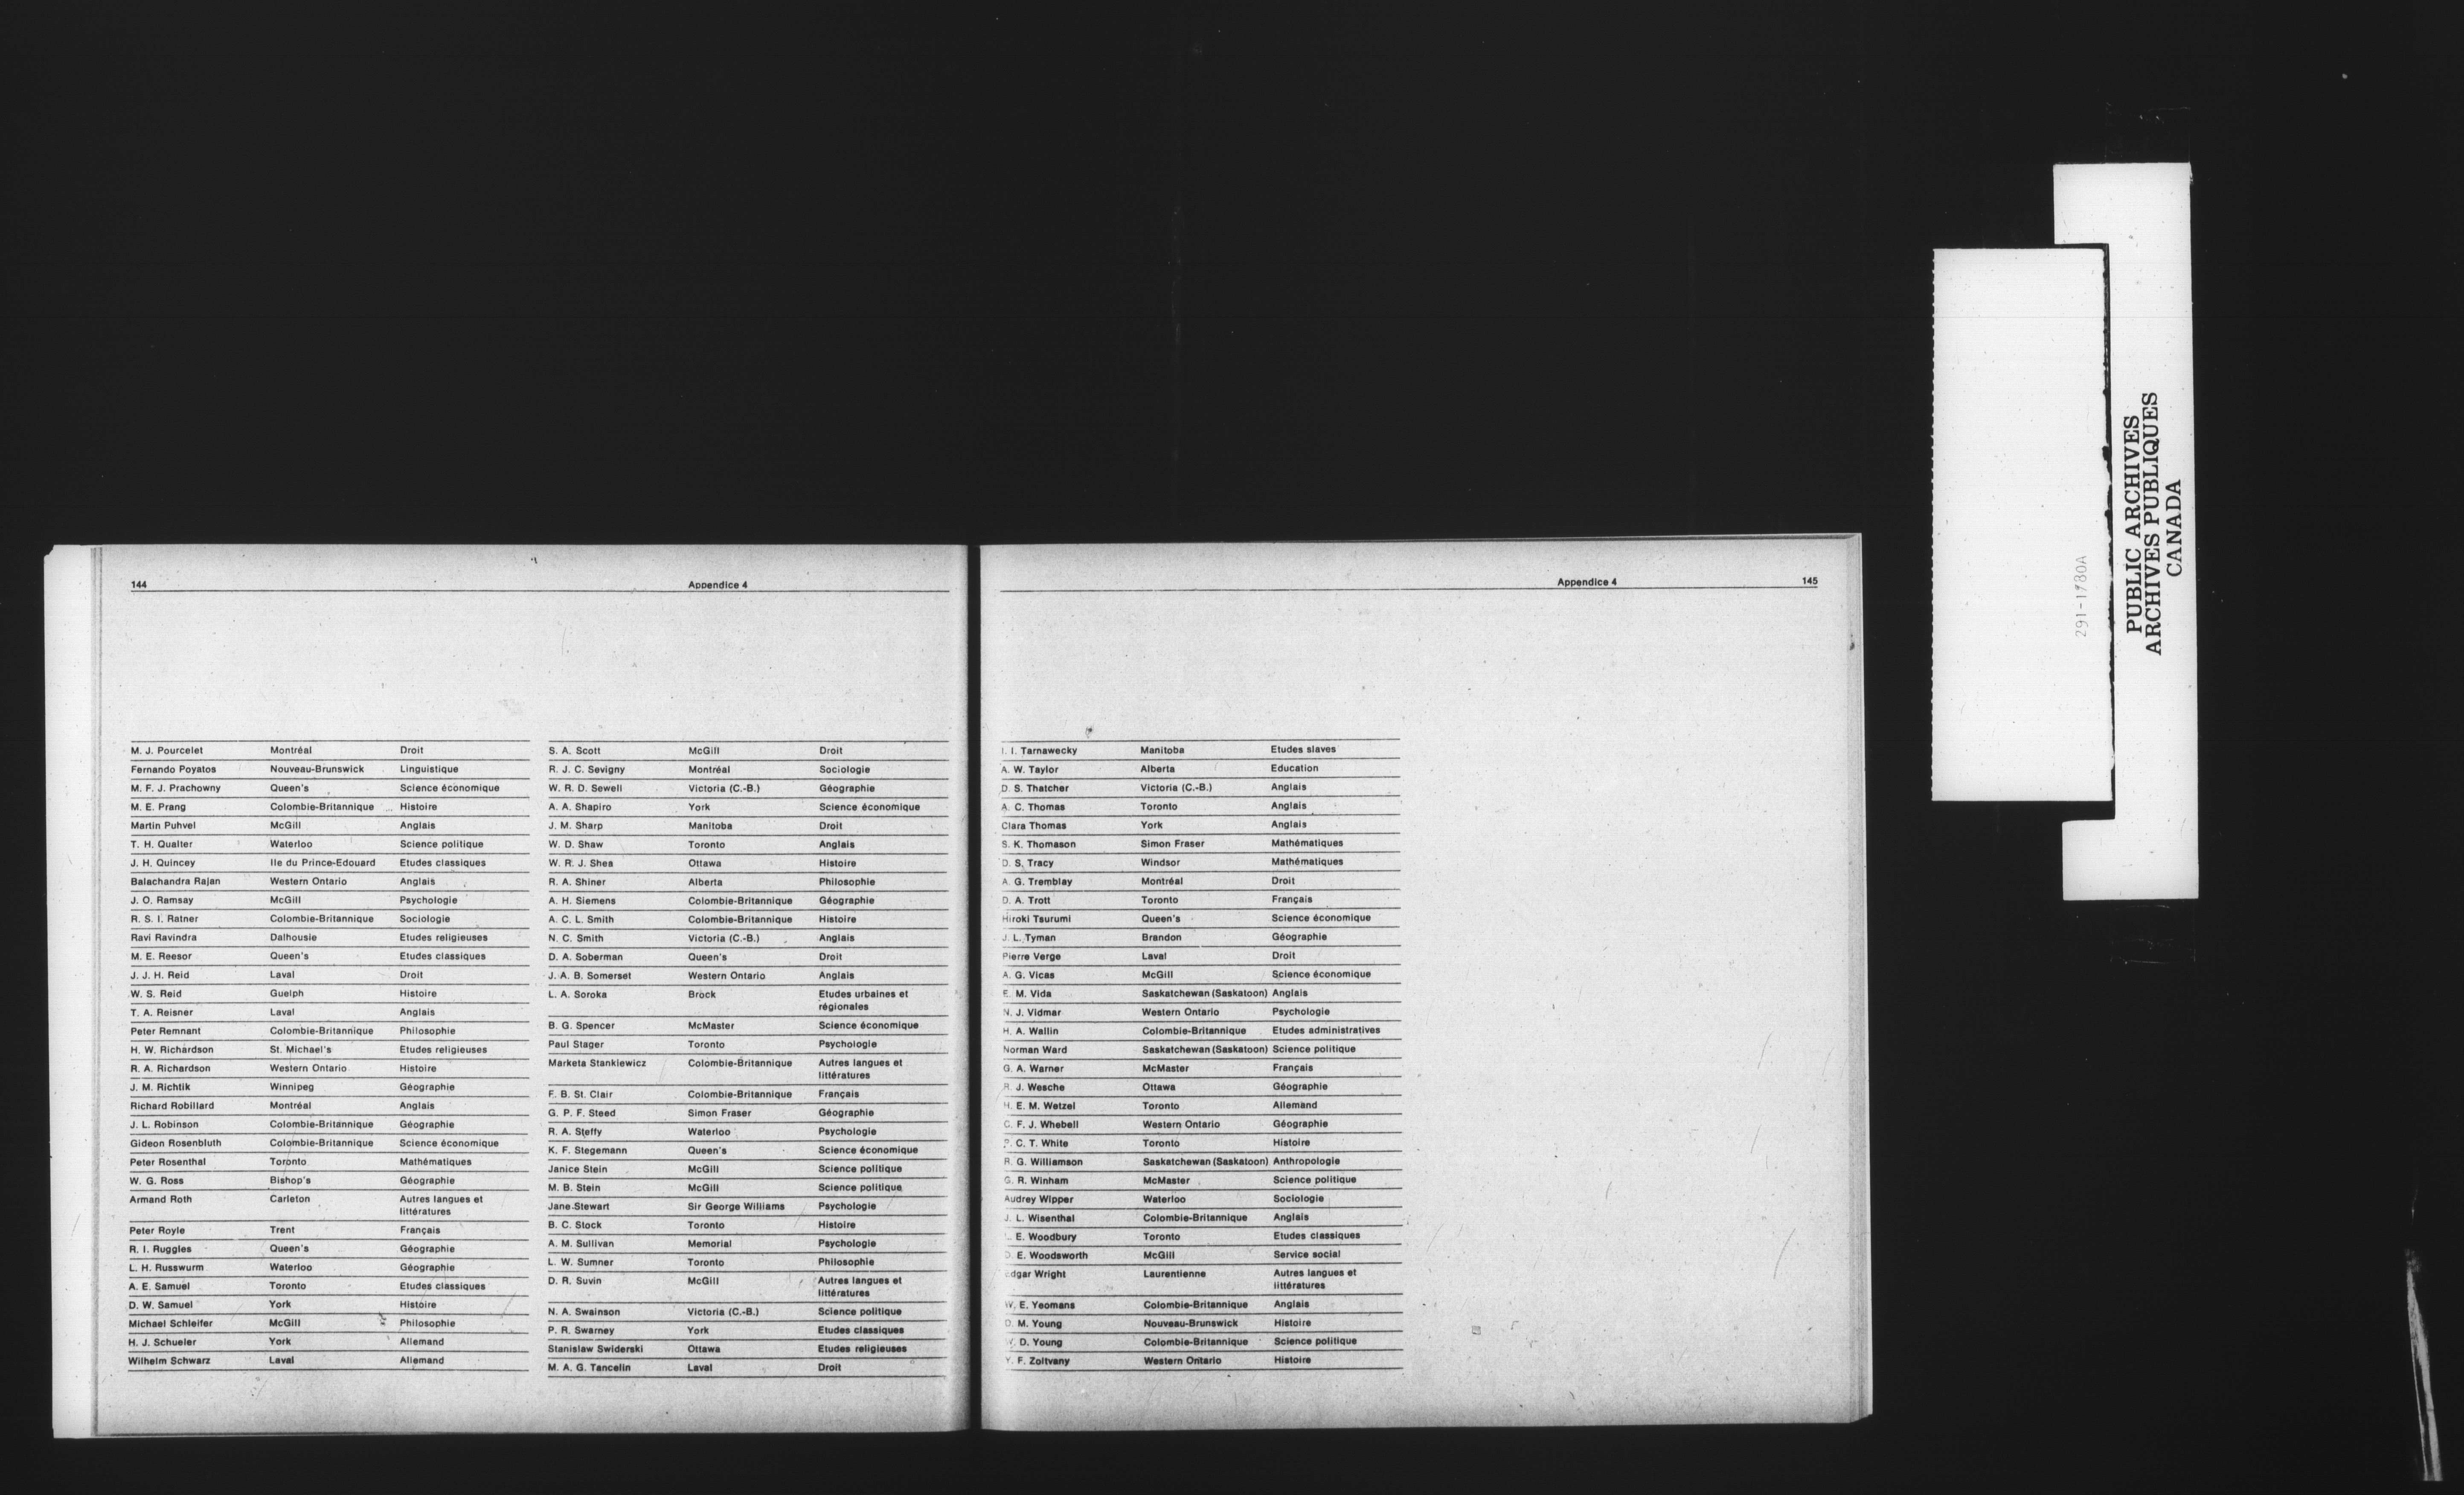 144 Appendice 4
M. J. Pourcelet Montréal Droit
Fernando Poyatos Nouveau-Brunswick Linguistique
M. F. J. Prachowny Queen's Science économique
M. E. Prang Colombie-Britannique Histoire
Martin Puhvel McGill Anglais
T. H. Qualter Waterloo Science politique
J. H. Quincey Ile du Prince-Edouard Etudes classiques
Balachandra Rajan Western Ontario Anglais
J. O. Ramsay McGill Psychologie
R. S. I. Ratner Colombie-Britannique Sociologie
Ravi Ravindra Dalhousie Etudes religieuses
M. E. Reesor Queen's Etudes classiques
J. J. H. Reid Laval Droit
W. S. Reid Guelph Histoire
T. A. Reisner Laval Anglais
Peter Remnant Colombie-Britannique Philosophie
H. W. Richardson St. Michael's Etudes religieuses
R. A. Richardson Western Ontario Histoire
J. M. Richtik Winnipeg Géographie
Richard Robillard Montréal Anglais
J. L. Robinson Colombie-Britannique Géographie
Gideon Rosenbluth Colombie-Britannique Science économique
Peter Rosenthal Toronto Mathématiques
W. G. Ross Bishop's Géographie
Armand Roth Carleton Autres langues et
littératures
Peter Royle Trent Français
R. I. Ruggles Queen's Géographie
L. H. Russwurm Waterloo Géographie
A. E. Samuel Toronto Etudes classiques
D. W. Samuel York Histoire
Michael Schleifer McGill Philosophie
H. J. Schueler York Allemand
Wilhelm Schwarz Laval Allemand
S. A. Scott McGill Droit
R. J. C. Sevigny Montréal Sociologie
W. R. D. Sewell Victoria (C.-B.) Géographie
A. A. Shapiro York Science économique
J. M. Sharp Manitoba Droit
W. D. Shaw Toronto Anglais
W. R. J. Shea Ottawa Histoire
R. A. Shiner Alberta Philosophie
A. H. Siemens Colombie-Britannique Géographie
A. C. L. Smith Colombie-Britannique Histoire
N. C. Smith Victoria (C.-B.) Anglais
D. A. Soberman Queen's Droit
J. A. B. Somerset Western Ontario Anglais
L. A. Soroka Brock Etudes urbaines et
régionales
B. G. Spencer McMaster Science économique
Paul Stager Toronto Psychologie
Marketa Stankiewicz Colombie-Britannique Autres langues et
littératures
F. B. St. Clair Colombie-Britannique Français
G. P. F. Steed Simon Fraser Géographie
R. A. Steffy Waterloo Psychologie
K. F. Stegemann Queen's Science économique
Janice Stein McGill Science politique
M. B. Stein McGill Science politique
Jane Stewart Sir George Williams Psychologie
B. C. Stock Toronto Histoire
A. M. Sullivan Memorial Psychologie
L. W. Sumner Toronto Philosophie
D. R. Suvin McGill Autres langues et
littératures
N. A. Swainson Victoria (C.-B.) Science politique
P. R. Swarney York Etudes classiques
Stanislaw Swiderski Ottawa Etudes religieuses
M. A. G. Tancelin Laval Droit
Appendice 4 145
I. I. Tarnawecky Manitoba Etudes slaves
A. W. Taylor Alberta Education
D. S. Thatcher Victoria (C.-B.) Anglais
A. C. Thomas Toronto Anglais
Clara Thomas York Anglais
S. K. Thomason Simon Fraser Mathématiques
D. S. Tracy Windsor Mathématiques
A. G. Tremblay Montréal Droit
D. A. Trott Toronto Français
Hiroki Tsurumi Queen's Science économique
J. L. Tyman Brandon Géographie
Pierre Verge Laval Droit
A. G. Vicas McGill Science économique
E. M. Vida Saskatchewan (Saskatoon) Anglais
N. J. Vidmar Western Ontario Psychologie
H. A. Wallin Colombie-Britannique Etudes administratives
Norman Ward Saskatchewan (Saskatoon) Science politique
G. A. Warner McMaster Français
R. J. Wesche Ottawa Géographie
H. E. M. Wetzel Toronto Allemand
C. F. J. Whebell Western Ontario Géographie
P. C. T. White Toronto Histoire
R. G. Williamson Saskatchewan (Saskatoon) Anthropologie
G. R. Winham McMaster Science politique
Audrey Wipper Waterloo Sociologie
J. L. Wisenthal Colombie-Britannique Anglais
E. Woodbury Toronto Etudes classiques
D. E. Woodsworth McGill Service social
Edgar Wright Laurentienne Autres langues et
littératures
W. E. Yeomans Colombie-Britannique Anglais
D. M. Young Nouveau-Brunswick Histoire
W. D. Young Colombie-Britannique Science politique
Y. F. Zoltvany Western Ontario Histoire
291-1780A
PUBLIC ARCHIVES
ARCHIVES PUBLIQUES
CANADA